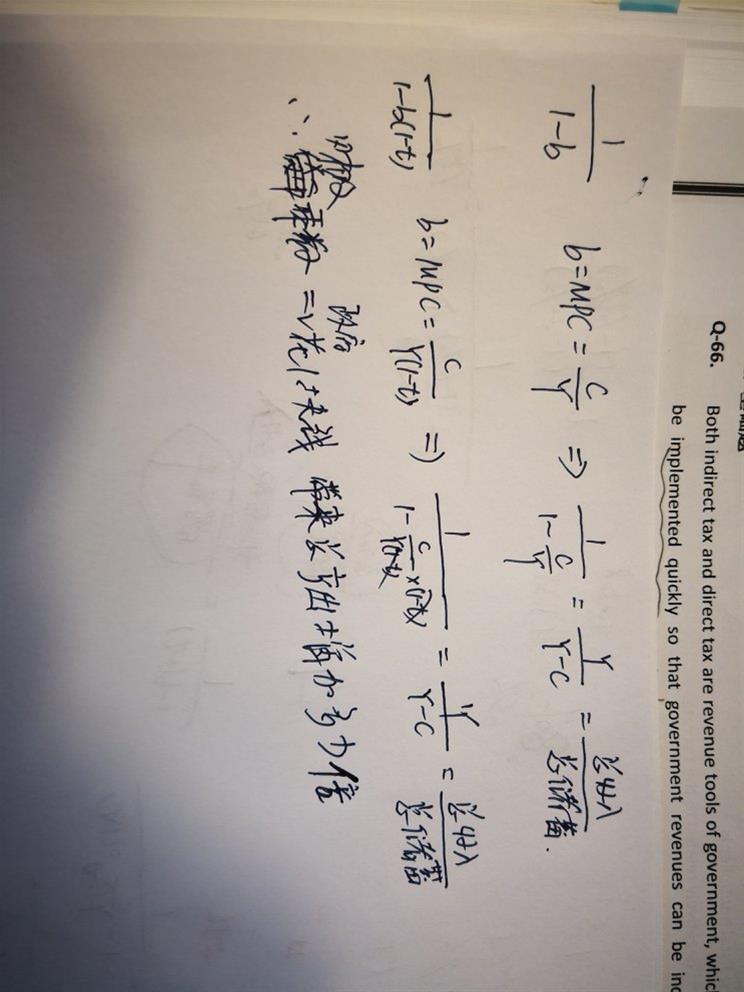 Q-66. Both indirect tax and direct tax are revenue tools of government, whic
be implemented quickly so that government revenues can be inc
1/(1-b) b=MPC=C/Y ⇒ 1/(1-C/Y) = Y/(Y-C) = 总收入/总储蓄.
1/(1-b(1-t)) b=MPC=C/(Y(1-t)) ⇒ 1/(1-C/(Y(1-t))×(1-t)) = Y/(Y-C) = 总收入/总储蓄
财政
政府
∴ 乘数 = 花1块钱 带来总产出增加多少倍